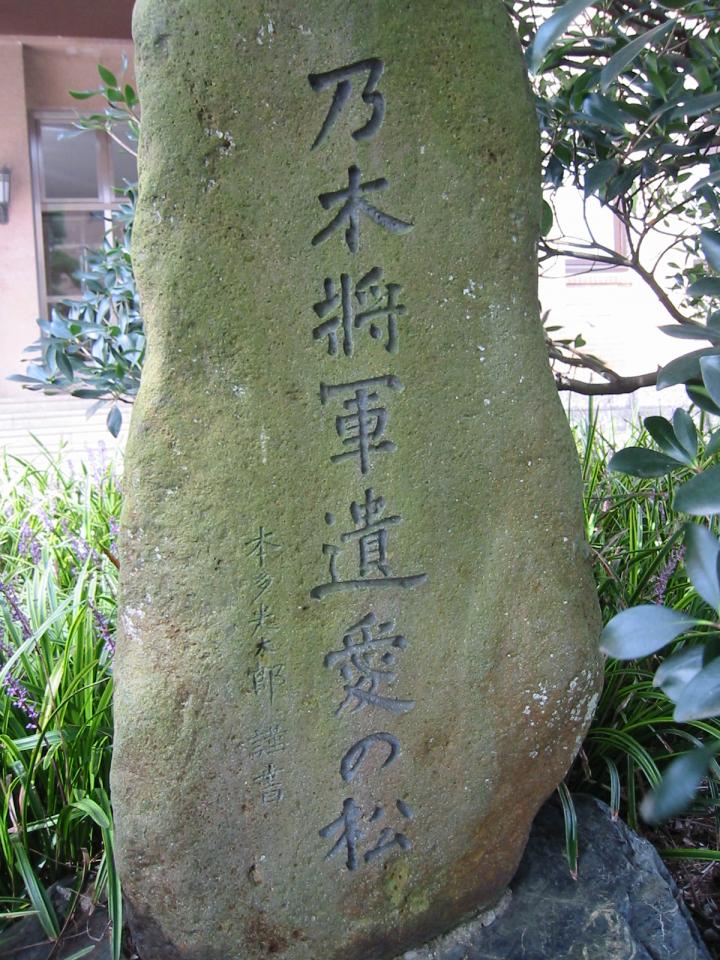 乃木將軍遺愛の松
本多光太郎 謹書